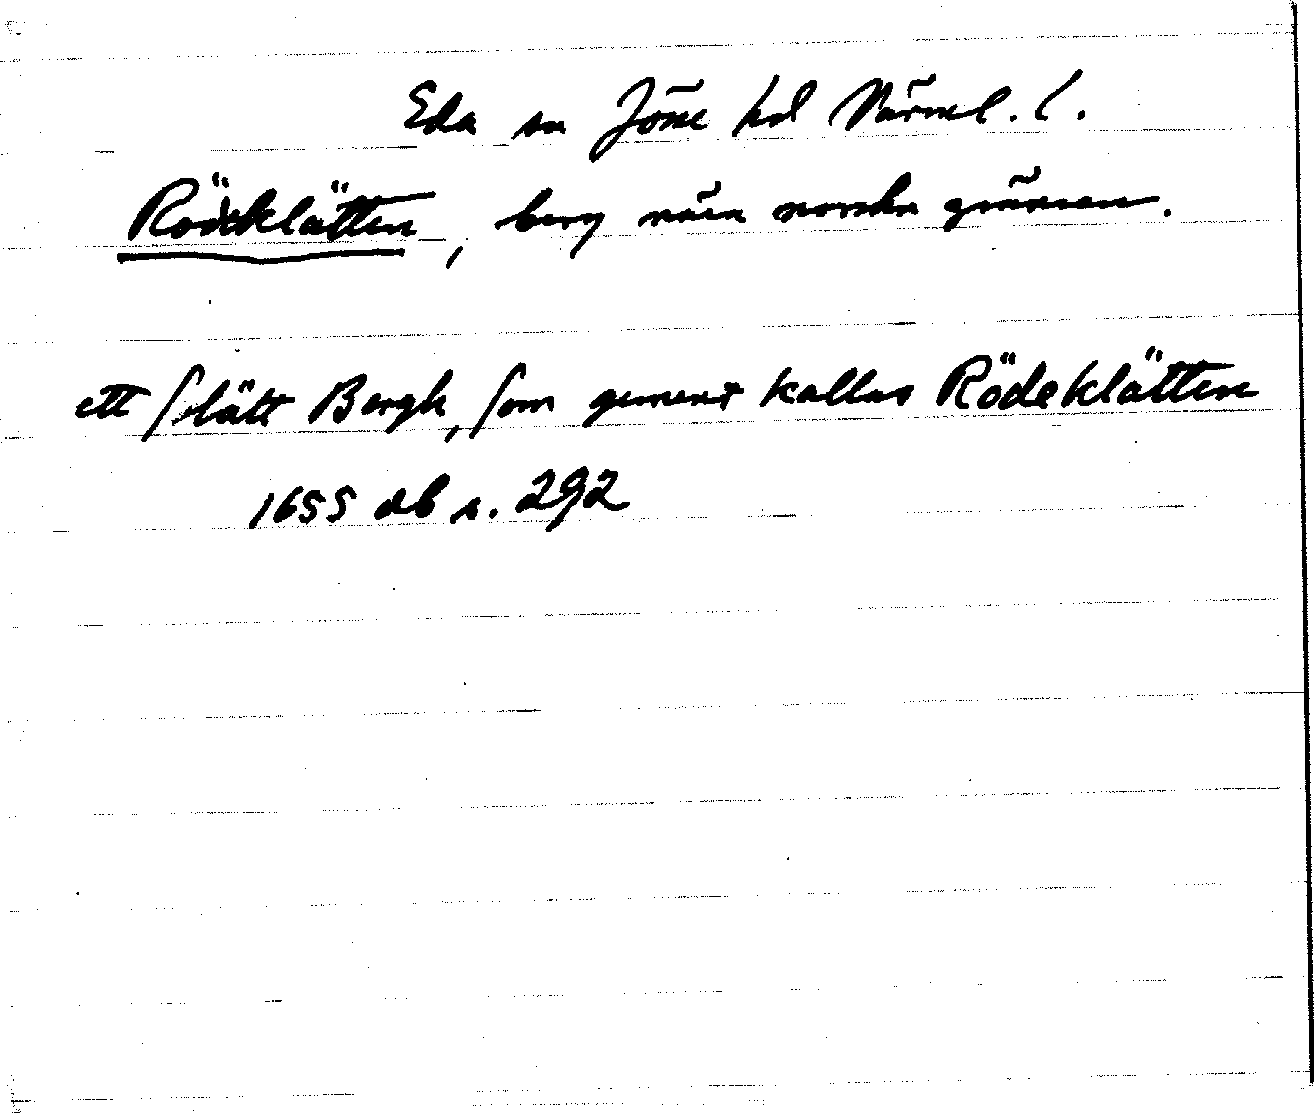 Eda sn Jösse hd Värml. l.
Rödeklätten, berg nära norska gränsen.
ett slätt Bergh, som gement kallas Rödeklätten
1655 db s. 292